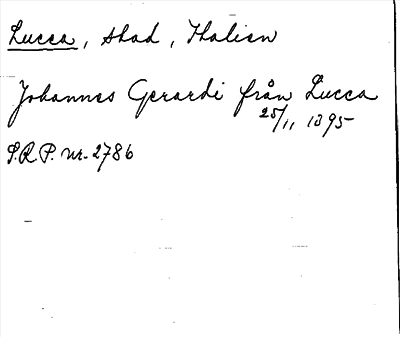 Lucca, stad, Italien
Johannes Gerardi från Lucca
25/11 1395
S.R.P. nr. 2786